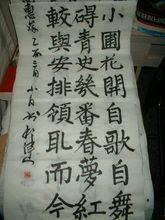 小圃花開自歌自舞
碍青史幾番春夢紅
較與安排領取而今
乙酉